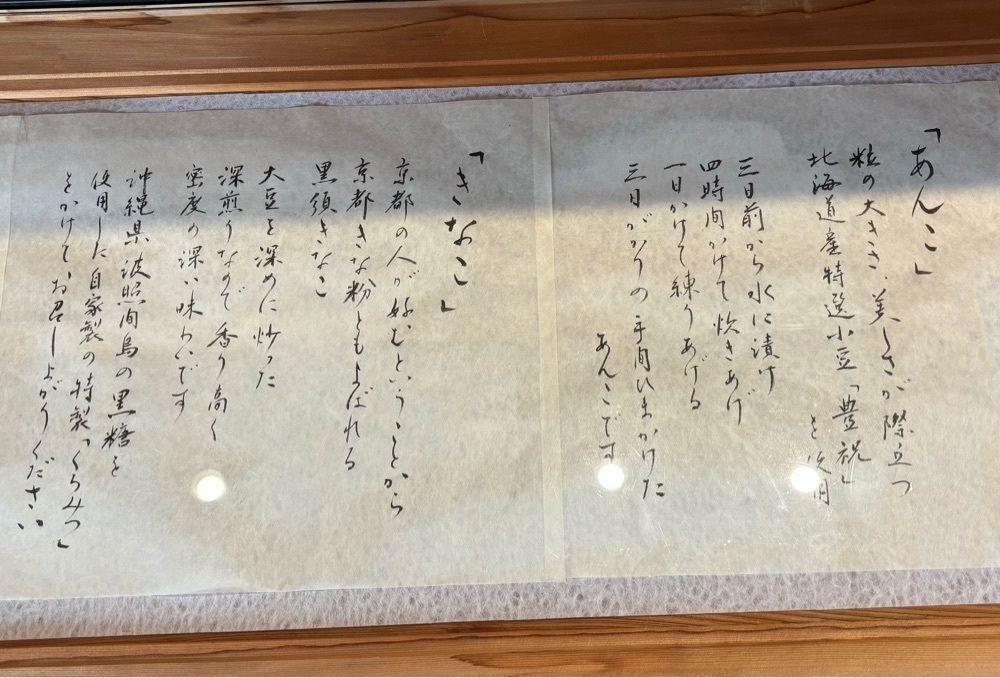 「あんこ」
粒の大きさ、美しさが際立つ
北海道産特選小豆「豊祝」
を使用
三日前から水に漬け
四時間かけて炊きあげ
一日かけて練りあげる
三日がかりの手間ひまかけた
あんこです
「きなこ」
京都の人が好むということから
京都きな粉ともよばれる
黒須きなこ
大豆を深めに炒った
深煎りなので香り高く
密度の深い味わいです
沖縄県波照間島の黒糖を
使用した自家製の特製「くろみつ」
をかけてお召し上がりください